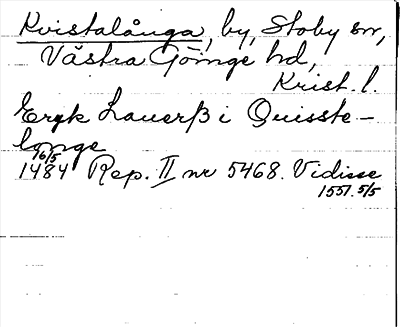 Kvistalånga, by, Stoby sn,
Västra Göinge hd,
Krist. l.
Eryk Lauerß i Quisste-
longe
1484 16/5 Rep. II nr 5468. Vidisse
1551. 5/5